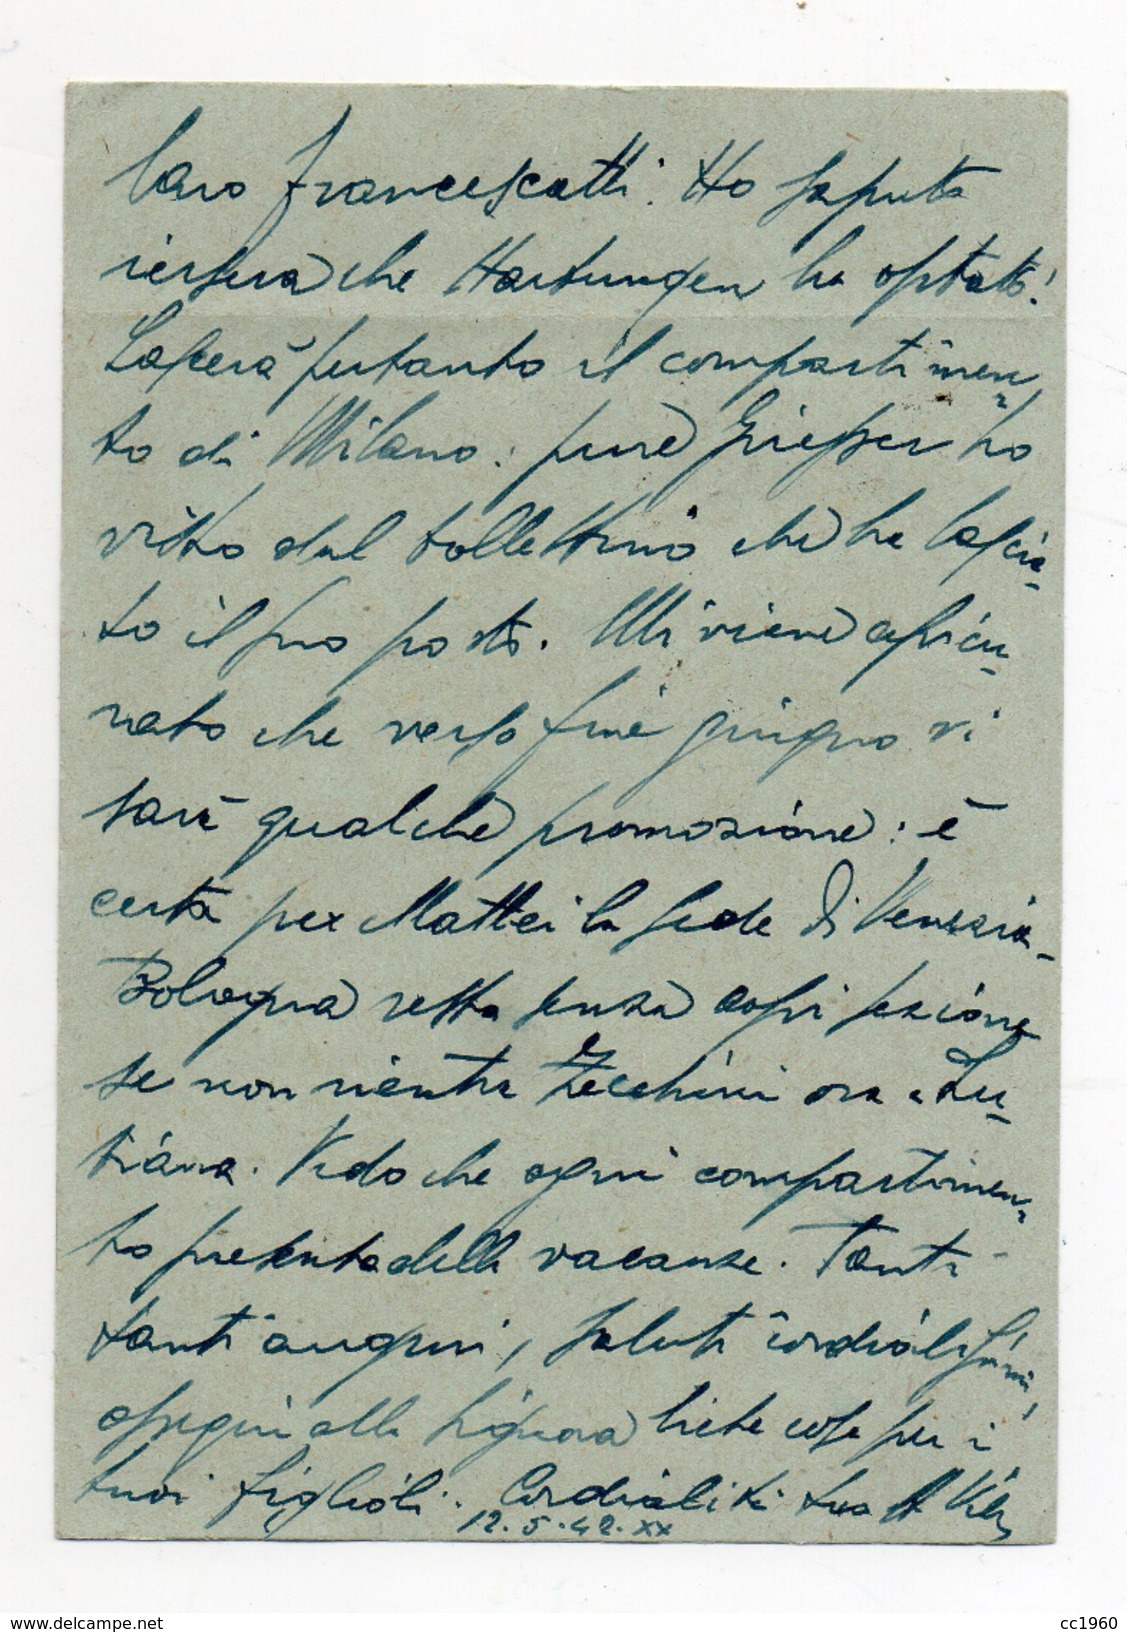 Caro Francescatti. Ho saputo
iersera che Hartungen ha optato!
Lascerà pertanto il compartimen-
to di Milano: pure Griesser ho
visto dal bollettino che ha lascia-
to il suo posto. Mi viene assicu-
rato che verso fine giugno vi
sarà qualche promozione: è
certa per Mattei la sede di Venezia-
Bologna resta senza caposezione
se non rientra Zecchini ora a Lu-
biana. Vedo che ogni compartimen-
to presenta delle vacanze. Tanti
tanti auguri, saluti cordialissimi,
ossequi alla signora liete cose per i
tuoi figlioli. Cordialità tuo
12.5.42.XX
www.delcampe.net
cc1960